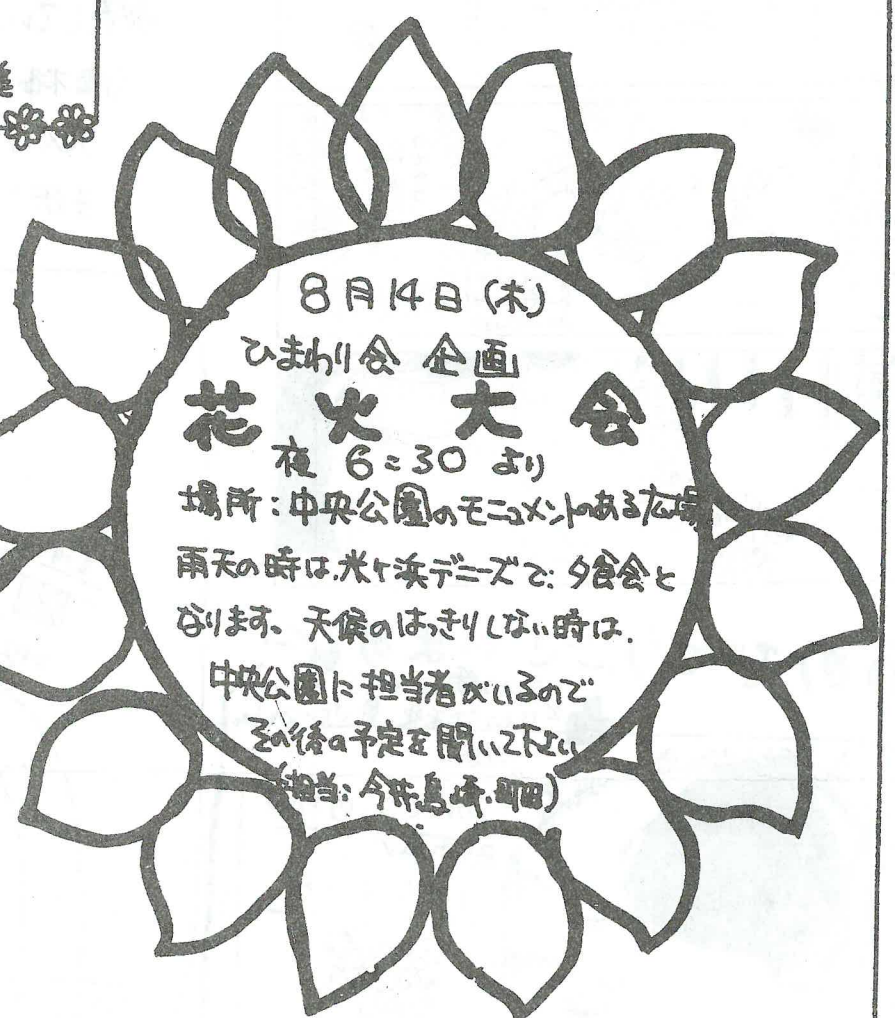 8月14日(木)
ひまわり会 企画
花火大会
夜 6:30 より
場所:中央公園のモニュメントのある広場
雨天の時は、米ヶ浜デニーズで、夕食会と
なります。天候のはっきりしない時は、
中央公園に担当者がいるので
その後の予定を聞いて下さい
(担当:今井・島崎・町田)